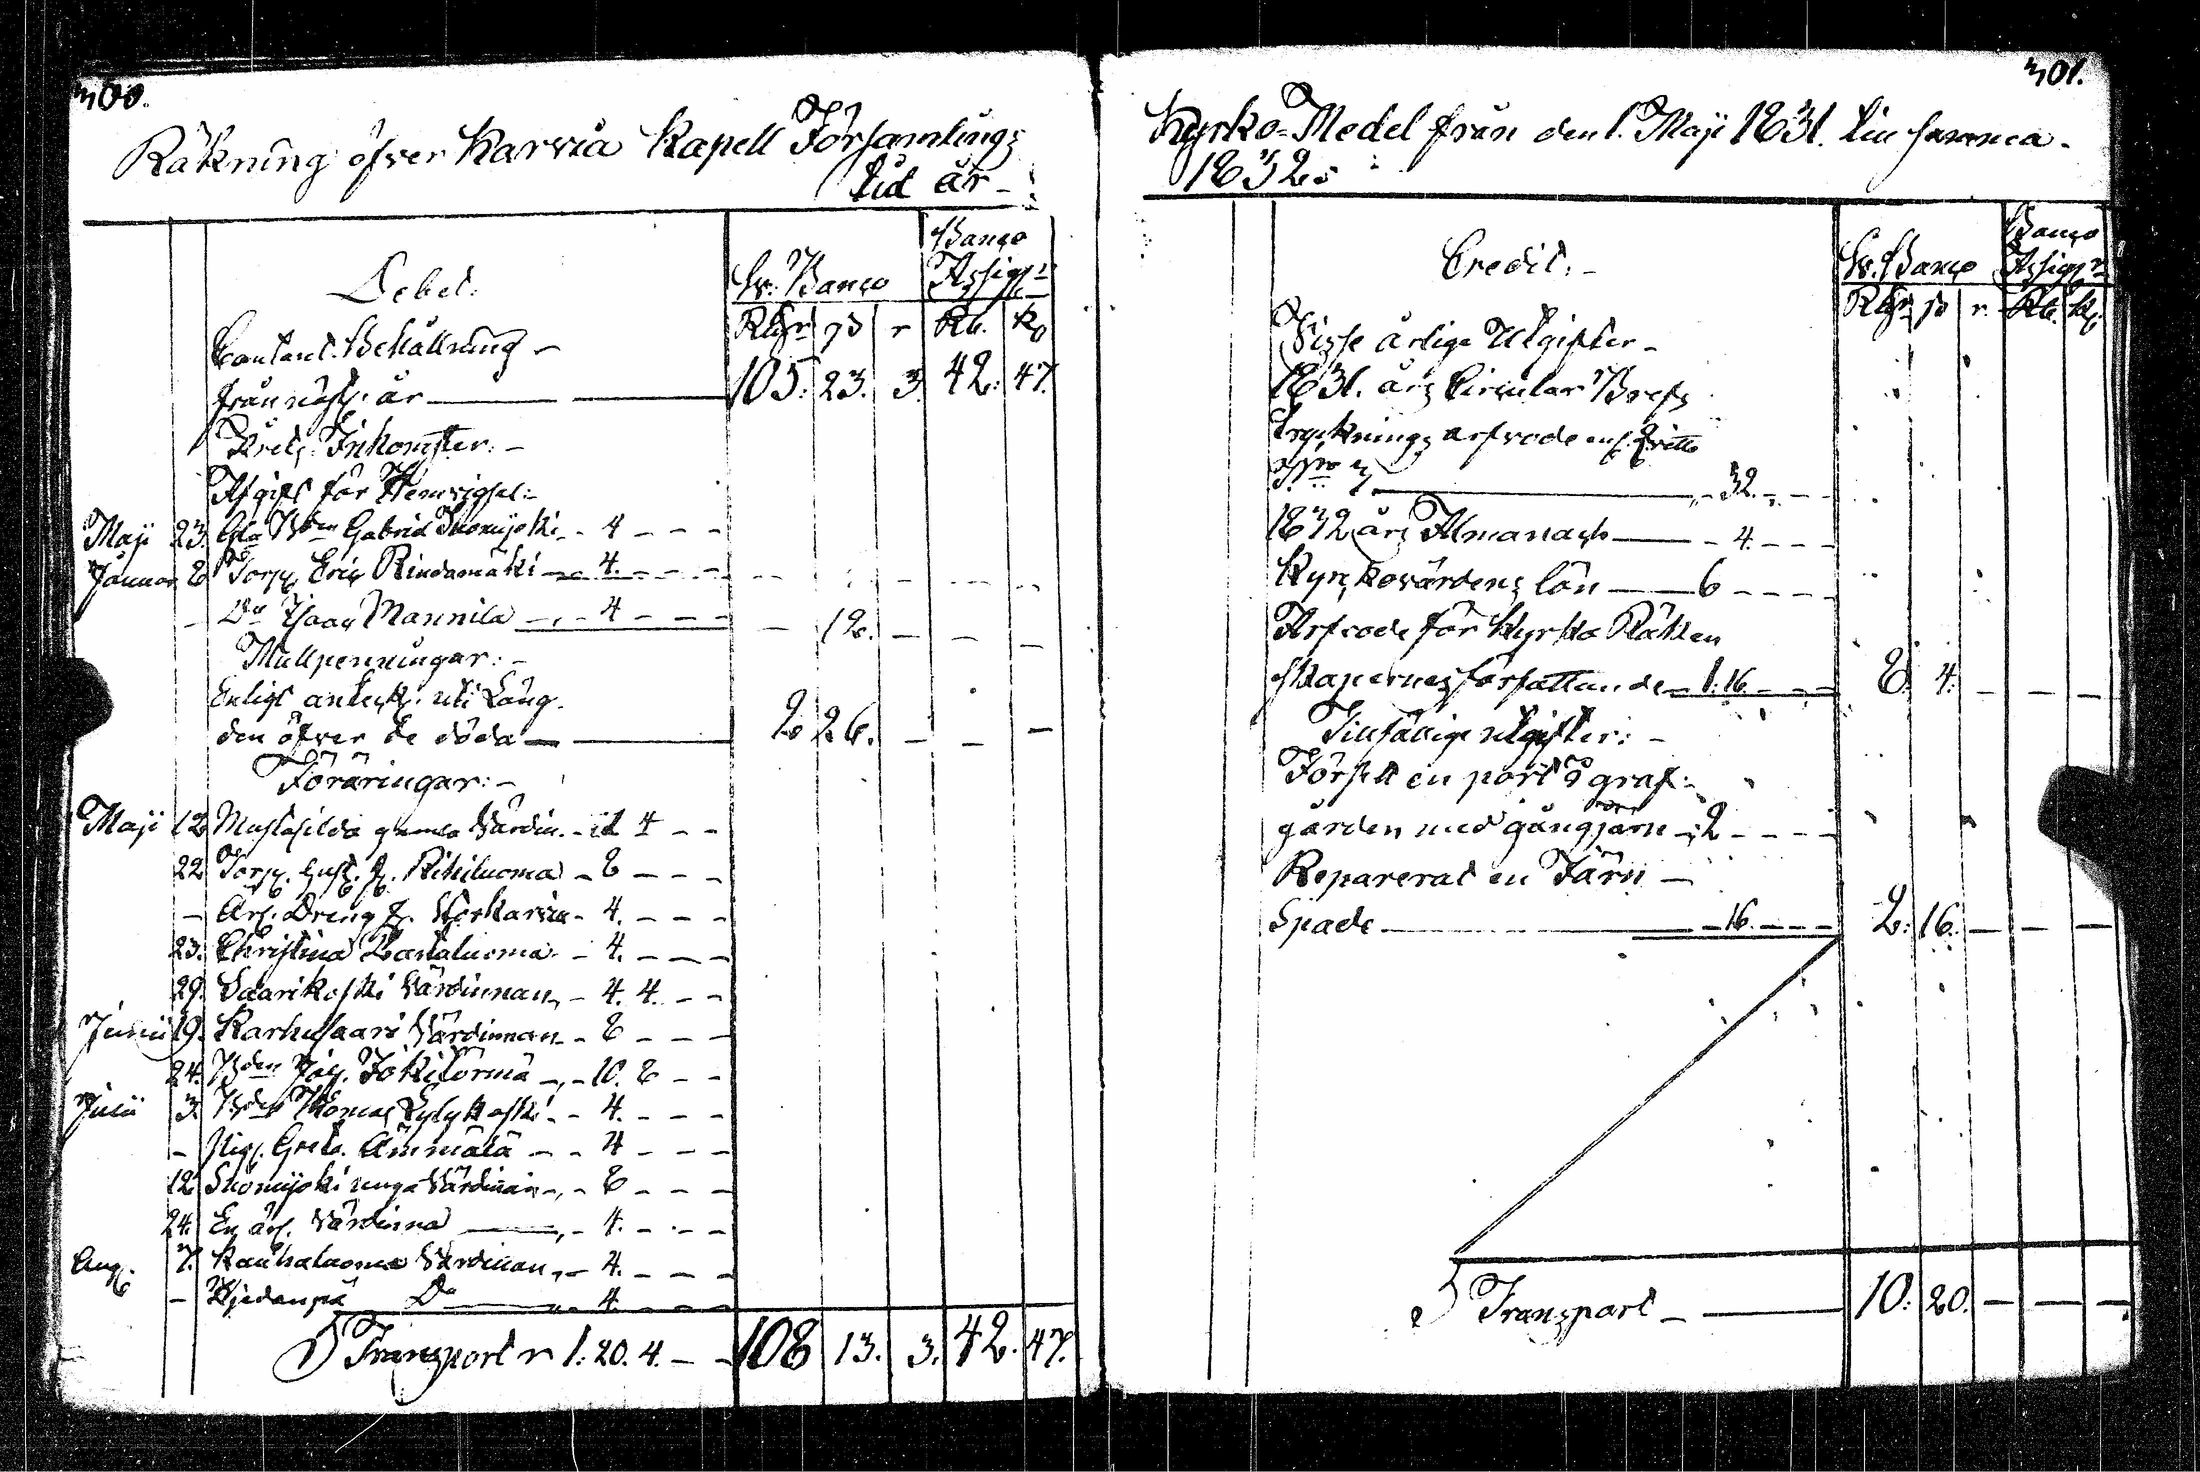 300.
Räkning öfver Karvia Kapell Församlings
tid år
Debet:
Sv. Banco
Banco Assign:
Rdr ß r Rb. Ko
Contant. Behållning
från näst. år 105. 23. 3. 42. 47.
Inkomster:
Afgift för Hemvigsel:
Maji 23. Gabriel Suomijoki 4
Januar 8 Torp. Eric Rindamäki 4.
Do Isaac Mannila 4 12.
Mullpenningar:
Enligt anteckn. uti Läng-
den öfver de döda 2 26.
Föräringar:
Maji 12 gamla Värdin. 4
22 Torp. Gust. Rihiluoma 8
Dreng 4.
23. Christina Kantaluoma 4.
29. Saarikoski Värdinnan 4. 4.
Junii 19. Karhusaari Värdinnan 8
24. Bden Jokilörmä 10. 8
Julii 3. Bden Thomas Lylykoski 4.
Pig. Greta Ämmälä 4
12 Suomijoki unga Värdinan 8
24. En Värdinna 4.
Aug. 7. Kauhaluoma Värdinan 4.
Do 4
Transport r 1. 20. 4. 108 13. 3. 42. 47.
301.
Kyrko-Medel från den 1. Maji 1831. till samma
1832.
Credit:
Sv. Banco
Banco Assign:
Rdr ß r. Rb. K.
Visse årlige Utgifter
1831. års Circulär Brefs
Trycknings arfvode enl. Qvitto
No 7 32.
1832 års Almanach 4.
Kyrkovärdens lön 6
Arfvode för Kyrko Räken
skapernes författande 1. 16 8. 4.
Tillfällige utgifter:
Förfält en port å graf-
gården med gångjärn 2
Reparerat en Järn
Spade 16. 2. 16.
Transport 10. 20.